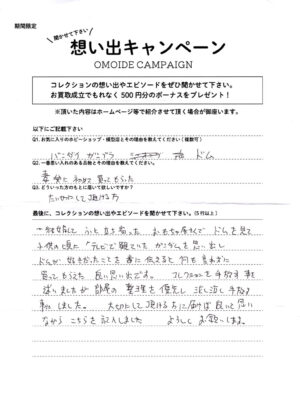 期間限定
聞かせて下さい
想い出キャンペーン
OMOIDE CAMPAIGN
コレクションの想い出やエピソードをぜひ聞かせて下さい。
お買取成立でもれなく500円分のボーナスをプレゼント！
※頂いた内容はホームページ等で紹介させて頂く場合が御座います。
以下にご記載下さい
Q1.お気に入りのホビーショップ・模型店とその理由を教えてください（複数可）
バンダイ ガンプラ ドム
Q2.一番思い入れのある品物とその理由を教えてください。
妻が 初めて 買ってもらった
Q3.どういった方のもとに届いて欲しいですか？
たいせつにして頂ける方
最後に、コレクションの想い出やエピソードを聞かせて下さい。(5行以上)
結婚して ふと立ち寄った おもちゃ屋さんで ドムを見て
子供の頃に テレビで観ていた ガンダムを思い出し
ドムが好きだったことを妻に伝えると 何も言わずに
買ってもらえた 良い思い出です。 コレクションを手放す事を
迷いましたが 部屋の整理を優先し 泣く泣く手放す
事にしました。 大切にして頂ける方に届けば良いと思い
ながら こちらを記入しました よろしくお願いします。